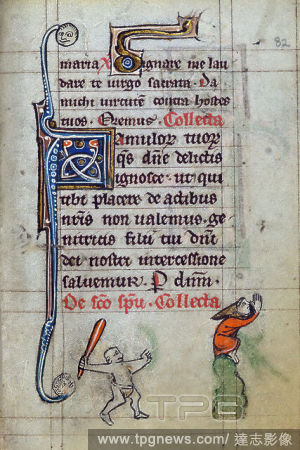 82
maria Dignare me lau
dare te virgo sacrata. Da
michi virtutem contra hostes
tuos. Oremus. Collecta
Famulor tuor
qs dne delictis
ignosce. ut qui
tibi placere de actibus
nris non valemus. ge
nitricis filii tui dmi
dei nostri intercessione
saluemur. P dnm.
De sco spu. Collecta
TPG
www.tpgnews.com/影像 | 達志影像